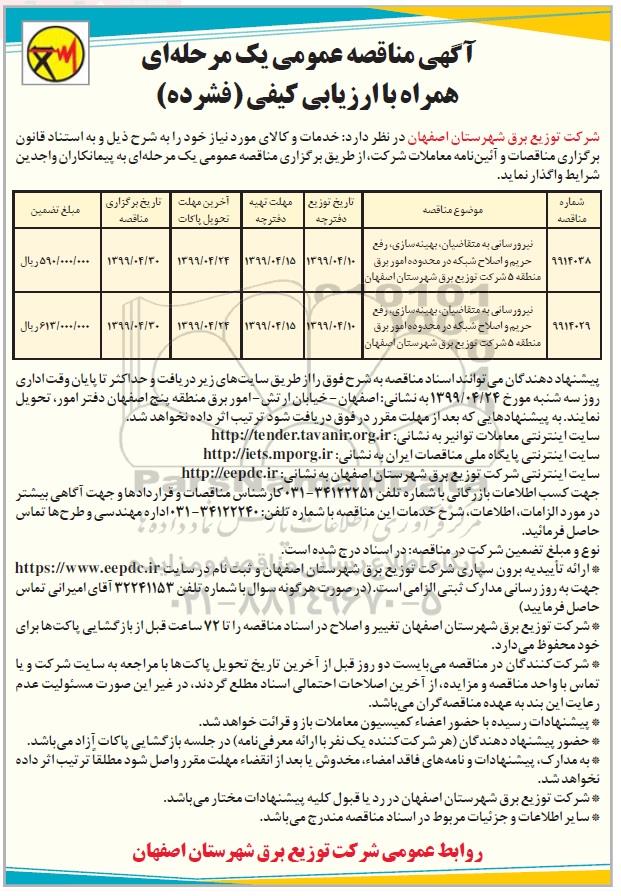 آگهی مناقصه عمومی یک مرحله‌ای
همراه با ارزیابی کیفی (فشرده)
شرکت توزیع برق شهرستان اصفهان در نظر دارد: خدمات و کالای مورد نیاز خود را به شرح ذیل و به استناد قانون
برگزاری مناقصات و آئین‌نامه معاملات شرکت، از طریق برگزاری مناقصه عمومی یک مرحله‌ای به پیمانکاران واجدین
شرایط واگذار نماید.
شماره مناقصه | موضوع مناقصه | تاریخ توزیع دفترچه | مهلت تهیه دفترچه | آخرین مهلت تحویل پاکات | تاریخ برگزاری مناقصه | مبلغ تضمین
۹۹۱۴۰۳۸ | نیرورسانی به متقاضیان، بهینه‌سازی، رفع حریم و اصلاح شبکه در محدوده امور برق منطقه ۵ شرکت توزیع برق شهرستان اصفهان | ۱۳۹۹/۰۴/۱۰ | ۱۳۹۹/۰۴/۱۵ | ۱۳۹۹/۰۴/۲۴ | ۱۳۹۹/۰۴/۳۰ | ۵۹۰/۰۰۰/۰۰۰ ریال
۹۹۱۴۰۲۹ | نیرورسانی به متقاضیان، بهینه‌سازی، رفع حریم و اصلاح شبکه در محدوده امور برق منطقه ۵ شرکت توزیع برق شهرستان اصفهان | ۱۳۹۹/۰۴/۱۰ | ۱۳۹۹/۰۴/۱۵ | ۱۳۹۹/۰۴/۲۴ | ۱۳۹۹/۰۴/۳۰ | ۶۱۳/۰۰۰/۰۰۰ ریال
پیشنهاد دهندگان می‌توانند اسناد مناقصه به شرح فوق را از طریق سایت‌های زیر دریافت و حداکثر تا پایان وقت اداری
روز سه شنبه مورخ ۱۳۹۹/۰۴/۲۴ به نشانی: اصفهان - خیابان ارتش - امور برق منطقه پنج اصفهان دفتر امور، تحویل
نمایند. به پیشنهادهایی که بعد از مهلت مقرر در فوق دریافت شود ترتیب اثر داده نخواهد شد.
سایت اینترنتی معاملات توانیر به نشانی: http://tender.tavanir.org.ir
سایت اینترنتی پایگاه ملی مناقصات ایران به نشانی: http://iets.mporg.ir
سایت اینترنتی شرکت توزیع برق شهرستان اصفهان به نشانی: http://eepdc.ir
جهت کسب اطلاعات بازرگانی با شماره تلفن ۳۴۱۲۲۲۵۱-۰۳۱ کارشناس مناقصات و قراردادها و جهت آگاهی بیشتر
در مورد الزامات، اطلاعات، شرح خدمات این مناقصه با شماره تلفن: ۳۴۱۲۲۲۴۰-۰۳۱ اداره مهندسی و طرح‌ها تماس
حاصل فرمائید.
نوع و مبلغ تضمین شرکت در مناقصه: در اسناد درج شده است.
* ارائه تأییدیه برون سپاری شرکت توزیع برق شهرستان اصفهان و ثبت نام در سایت https://www.eepdc.ir
جهت به روز رسانی مدارک ثبتی الزامی است. (در صورت هرگونه سوال با شماره تلفن ۳۲۲۴۱۱۵۳ آقای امیرانی تماس
حاصل فرمایید)
* شرکت توزیع برق شهرستان اصفهان تغییر و اصلاح در اسناد مناقصه را تا ۷۲ ساعت قبل از بازگشایی پاکت‌ها برای
خود محفوظ می‌دارد.
* شرکت‌کنندگان در مناقصه می‌بایست دو روز قبل از آخرین تاریخ تحویل پاکت‌ها با مراجعه به سایت شرکت و یا
تماس با واحد مناقصه و مزایده، از آخرین اصلاحات احتمالی اسناد مطلع گردند، در غیر این صورت مسئولیت عدم
رعایت این بند به عهده مناقصه‌گران می‌باشد.
* پیشنهادات رسیده با حضور اعضاء کمیسیون معاملات باز و قرائت خواهد شد.
* حضور پیشنهاد دهندگان (هر شرکت‌کننده یک نفر با ارائه معرفی‌نامه) در جلسه بازگشایی پاکات آزاد می‌باشد.
* به مدارک، پیشنهادات و نامه‌های فاقد امضاء، مخدوش یا بعد از انقضاء مهلت مقرر واصل شود مطلقاً ترتیب اثر داده
نخواهد شد.
* شرکت توزیع برق شهرستان اصفهان در رد یا قبول کلیه پیشنهادات مختار می‌باشد.
* سایر اطلاعات و جزئیات مربوط در اسناد مناقصه مندرج می‌باشد.
روابط عمومی شرکت توزیع برق شهرستان اصفهان
ParsNamadData
۰۲۱-۸۸۳۴۹۶۷۰-۵